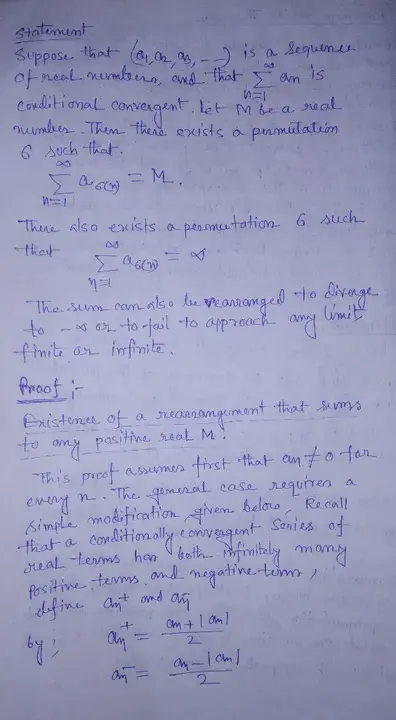 Statement
Suppose that (a₁, a₂, a₃, ---) is a sequence
of real numbers, and that ∑_{n=1}^{∞} an is
conditional convergent. Let M be a real
number. Then there exists a permutation
6 such that.
∑_{n=1}^{∞} a_{6(n)} = M.
There also exists a permutation 6 such
that ∑_{n=1}^{∞} a_{6(n)} = ∞
The sum can also be rearranged to diverge
to -∞ or to fail to approach any limit
finite or infinite.
Proof :-
Existence of a rearrangement that sums
to any positive real M :
This proof assumes first that an ≠ 0 for
every n. The general case requires a
simple modification, given below, Recall
that a conditionally convergent series of
real terms has both infinitely many
positive terms and negative terms,
define an⁺ and an⁻
by; an⁺ = (an + |an|)/2
an⁻ = (an - |an|)/2